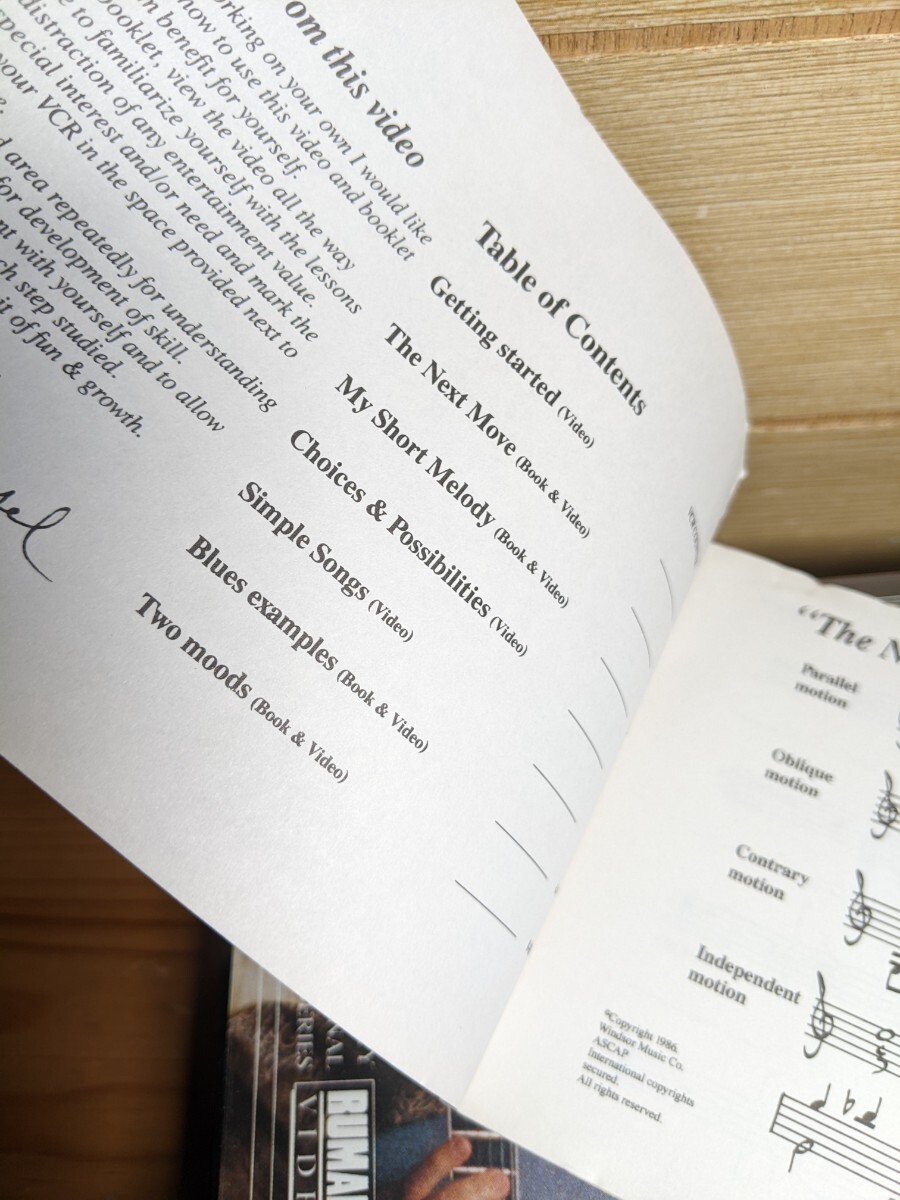 om this video
rking on your own I would like
now to use this video and booklet
n benefit for yourself.
booklet, view the video all the way
e to familiarize yourself with the lessons
distraction of any entertainment value.
special interest and/or need and mark the
your VCR in the space provided next to
e.
d area repeatedly for understanding
for development of skill.
nt with yourself and to allow
ch step studied.
it of fun & growth.
Table of Contents
Getting started (Video)
The Next Move (Book & Video)
My Short Melody (Book & Video)
Choices & Possibilities (Video)
Simple Songs (Video)
Blues examples (Book & Video)
Two moods (Book & Video)
“The N
Parallel
motion
Oblique
motion
Contrary
motion
Independent
motion
©Copyright 1986.
Windsor Music Co.
ASCAP.
International copyrights
secured.
All rights reserved.
Y
NAL
ERIES
RUMA
VIDE